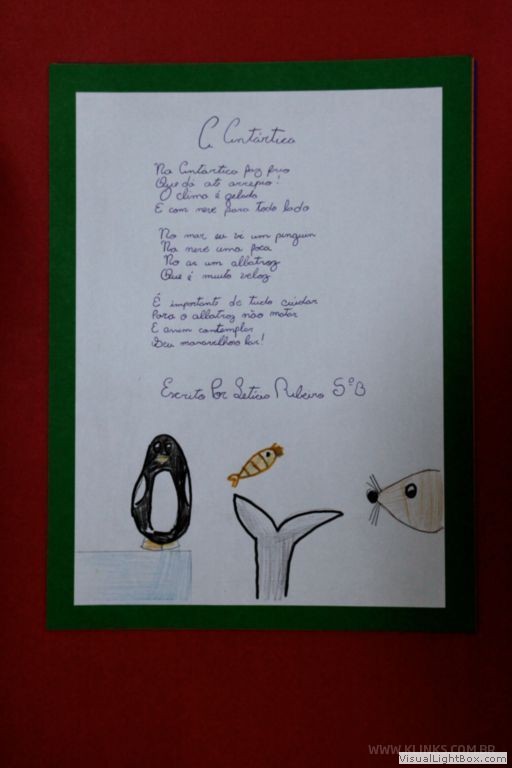 A Antártica
Na Antártica faz frio
Que dá até arrepio!
O clima é gelado
E com neve para todo lado
No mar eu vi um pinguin
Na neve uma foca
No ar um albatroz
Que é muito veloz
É importante de tudo cuidar
Para o albatroz não matar
E assim contemplar
Seu maravilhoso lar!
Escrito Por Letícia Ribeiro 5ºB
WWW.KLINKS.COM.BR
VisualLightBox.com